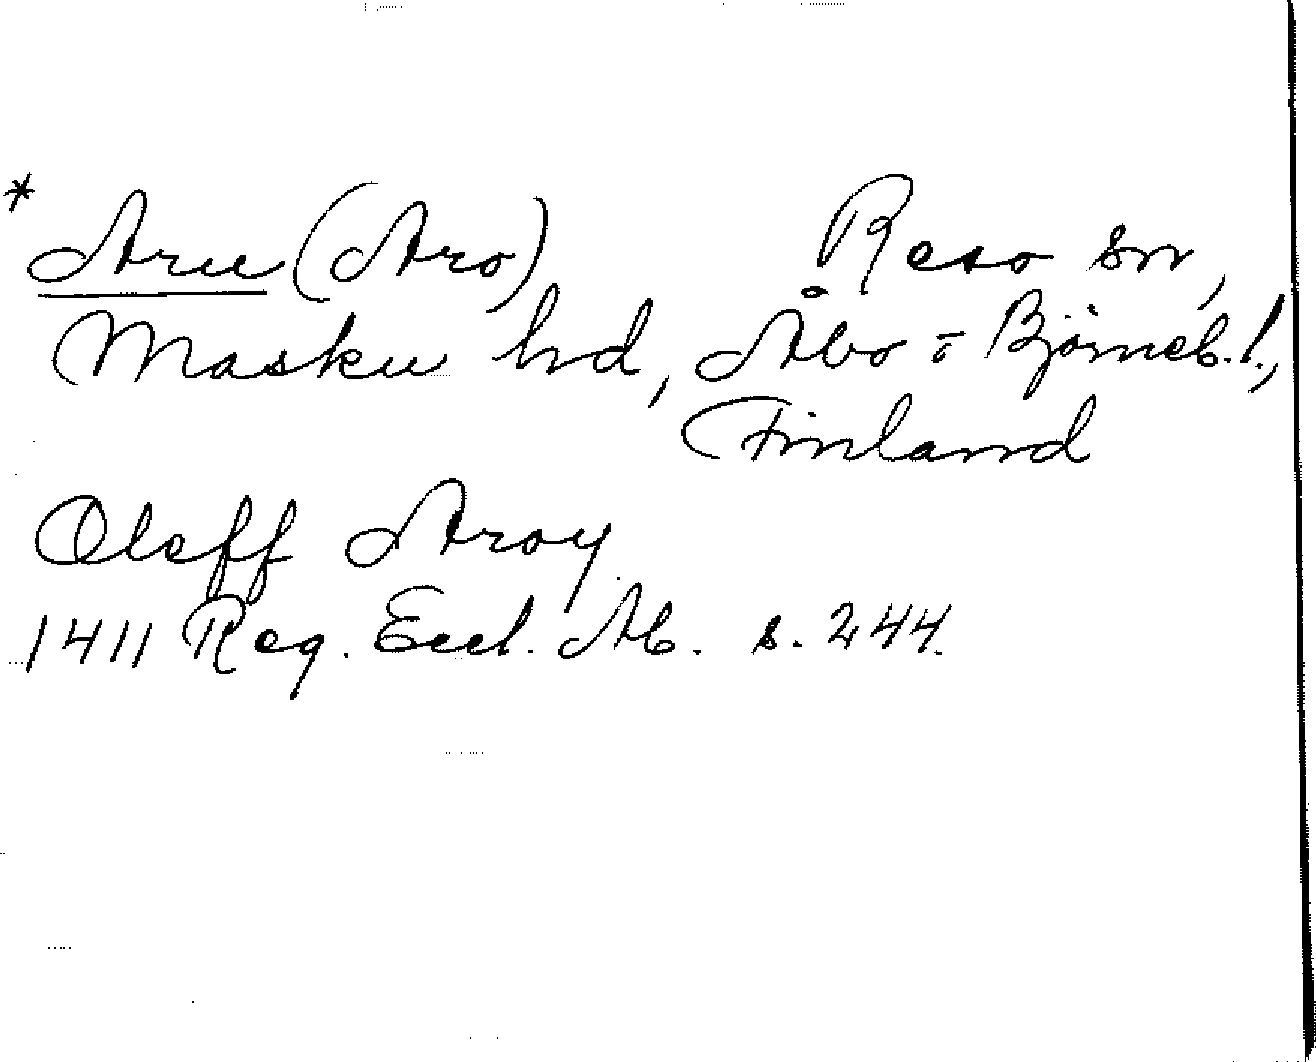 * Aru (Aro) Reso sn,
Masku hd, Åbo o Björneb. l.,
Finland
Oleff Aroy
1411 Reg. Eccl. Ab. s. 244.